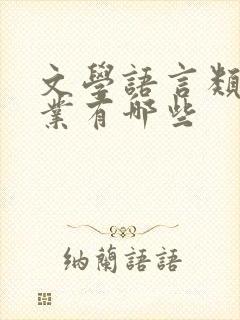 文學語言類
業有哪些
納蘭語語